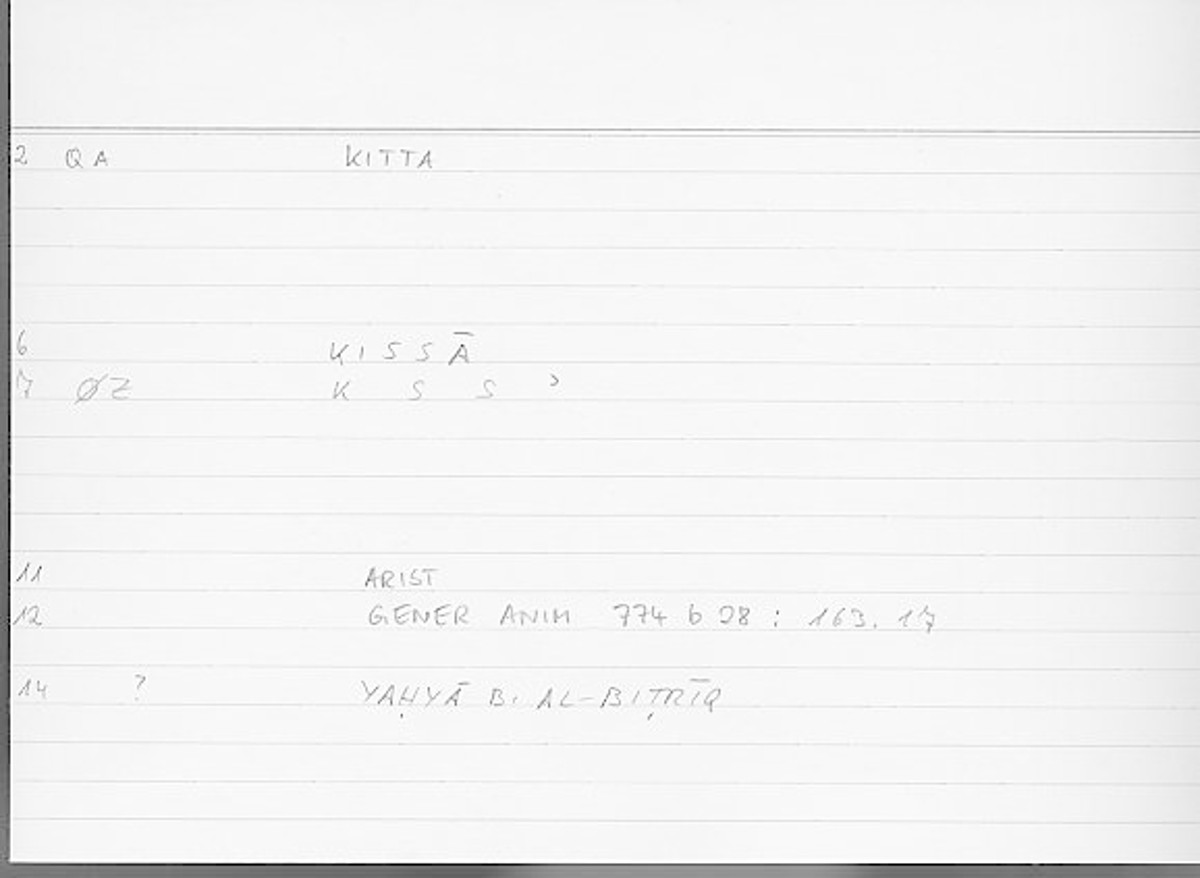 2 QA KITTA
6 KISSĀ
7 ØZ K S S ʾ
11 ARIST
12 GENER ANIM 774 b 28 : 163. 17
14 ? YAḤYĀ B. AL-BIṬRĪQ